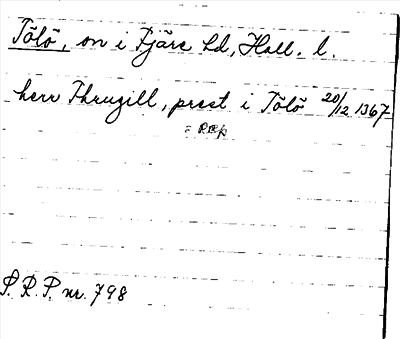 Tölö, sn i Fjäre hd, Hall. l.
herr Thrugill, prest i Tölö 20/12 1367
= RRP
S. R. P. nr. 798